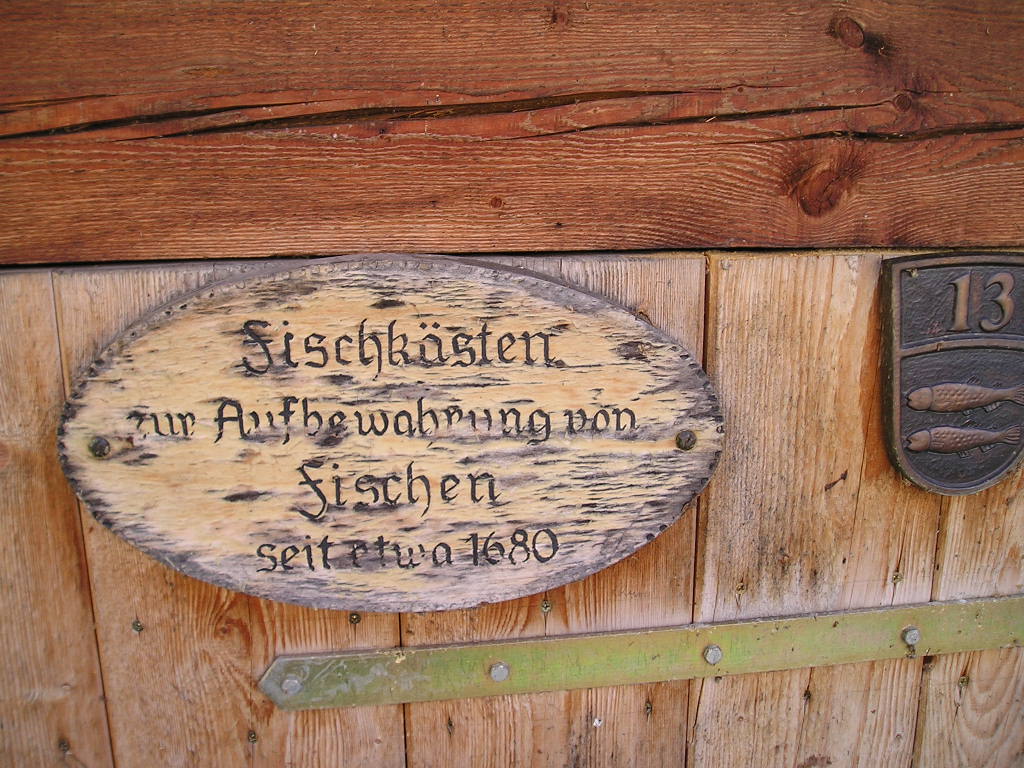 Fischkästen
zur Aufbewahrung von
Fischen
seit etwa 1680
13